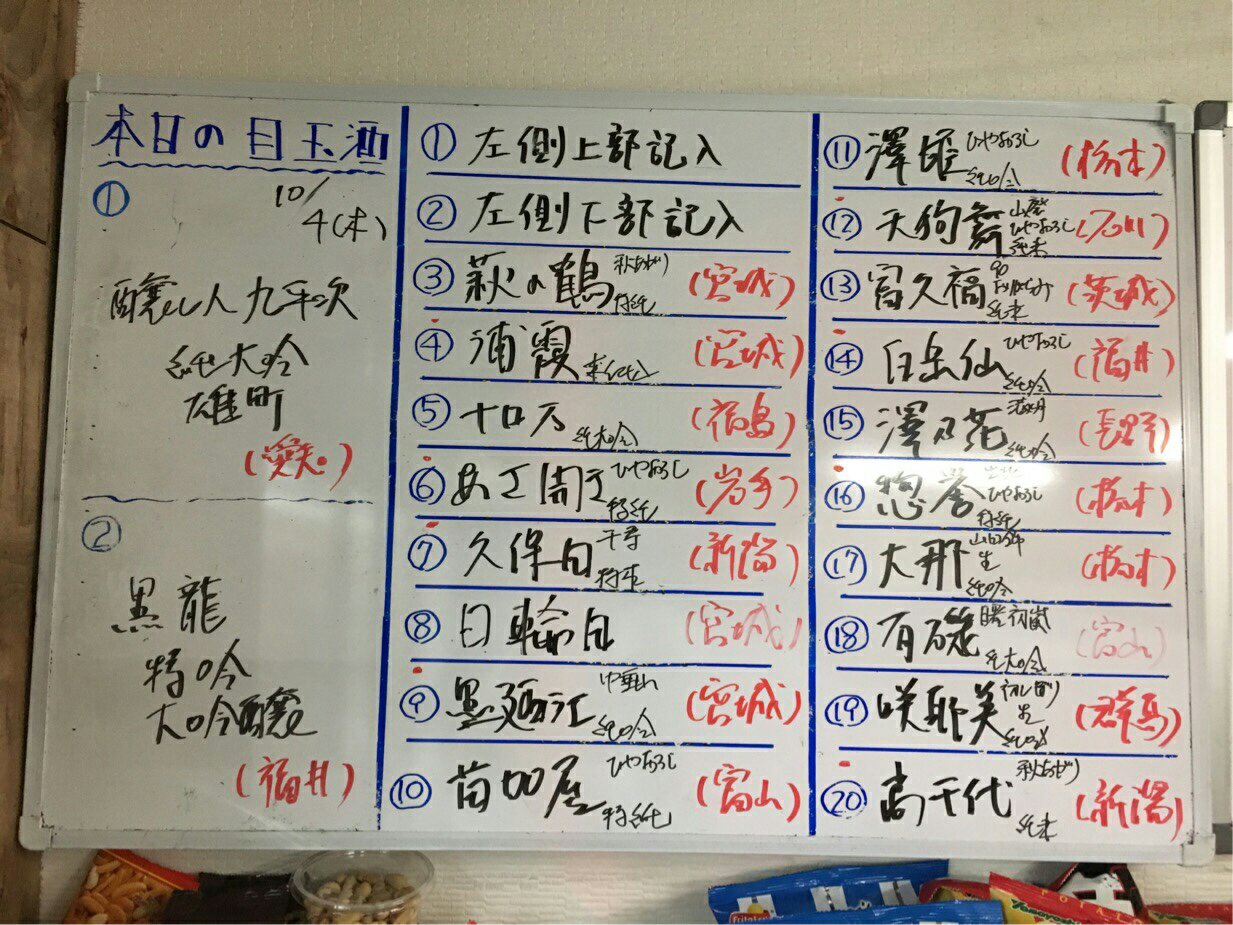 本日の目玉酒
10/4(木)
①
醸し人九平次
純大吟
雄町
(愛知)
②
黒龍
特吟
大吟醸
(福井)
① 左側上部記入
② 左側下部記入
③ 萩の鶴 秋あがり 特純 (宮城)
④ 浦霞 (宮城)
⑤ 十口万 純大吟 (福島)
⑥ あさ開 ひやおろし 特純 (岩手)
⑦ 久保田 千寿 (新潟)
⑧ 日輪田 (宮城)
⑨ 墨廼江 中垂れ 純吟 (宮城)
⑩ 苗加屋 ひやおろし 特純 (富山)
⑪ 澤姫 ひやおろし 純吟 (栃木)
⑫ 天狗舞 山廃 ひやおろし 純米 (石川)
⑬ 富久福 純米 (茨城)
⑭ 白岳仙 ひやおろし 純吟 (福井)
⑮ 澤乃花 純吟 (長野)
⑯ 惣誉 ひやおろし 特純 (栃木)
⑰ 大那 生 純吟 (栃木)
⑱ 有磯 曙 初嵐 純大吟 (富山)
⑲ 咲耶美 初しぼり 生 (群馬)
⑳ 高千代 秋あがり 純米 (新潟)